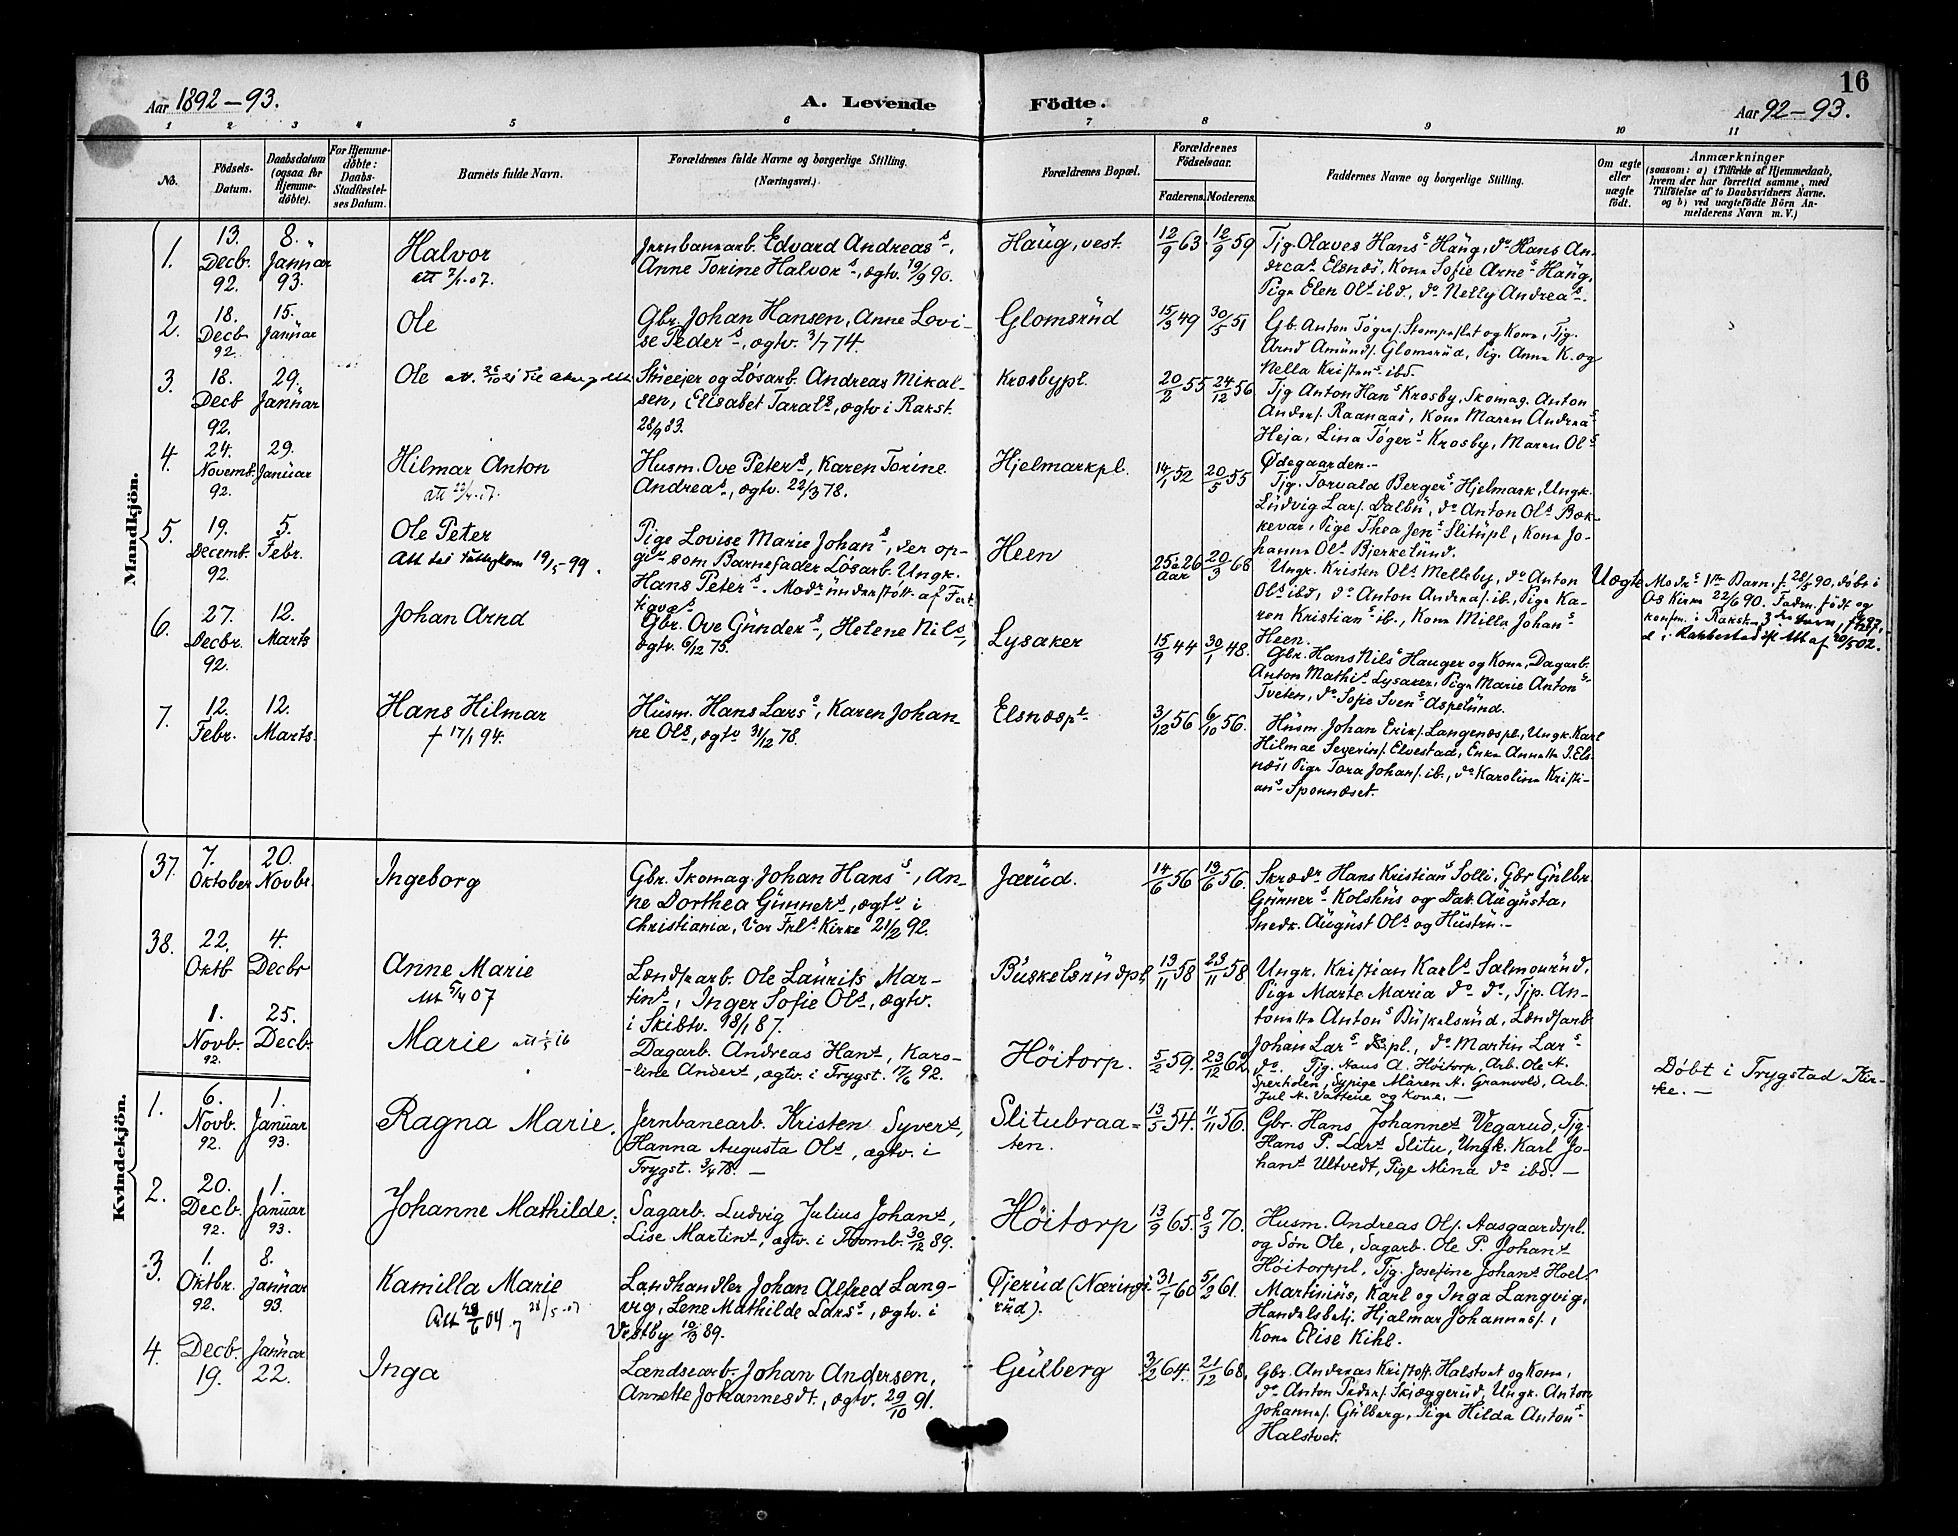 16
Aar 1892-93.
A. Levende
Födte.
Aar 92-93.
1 2 3 4 5 6 7 8 9 10 11
No.
Födsels-
Datum.
Daabsdatum
(ogsaa for
Hjemme-
døbte).
For Hjemme-
døbte:
Daabs-
Stadfæstel-
ses Datum.
Barnets fulde Navn.
Forældrenes fulde Navne og borgerlige Stilling.
(Næringsvei.)
Forældrenes Bopæl.
Forældrenes
Födselsaar.
Faderens. Moderens.
Faddernes Navne og borgerlige Stilling.
Om ægte
eller
uægte
født.
Anmærkninger
(saasom: a) i Tilfælde af Hjemmedaab,
hvem der har forrettet samme, med
Tilføielse af to Daabsvidners Navne.
og b) ved uægtefødte Börn An-
melderens Navn m. V.)
Mandkjön.
1.
13.
Decb.
92.
8.
Januar
93.
Halvor
att 7/1-07.
Jernbanearb. Edvard Andreas s,
Anne Torine Halvor s, ægtv. 19/9 90.
Haug, vest.
12/9 63.
12/9 59
Tjg. Olaves Hans s Haug, do Hans An-
dreas Elsnæs, Kona Sofie Arne s Haug,
Pige Elen Ols ibd., do Nelly Andreas.
2.
18.
Decb
92.
15.
Januar
Ole
Gbr. Johan Hansen, Anne Lovi-
se Peder s, ægtv. 3/7 74.
Glomsrud
15/3 49
30/5 51
Gb. Anton Tøgers. Stompeslet og Kone, Tjg.
Arnd Amunds. Glomsrud, Pig. Anna K. og
Nella Kristens ibd.
3.
18.
Decb
92.
29.
Januar
Ole
Stueejer og Løsarb. Andreas Mikal-
sen, Elisabet Taral s, ægtv i Rakst.
28/9 83.
Krosbypl.
20/2 55
24/12 56
Tjg Anton Hans Krosby, Skomag. Anton
Anders. Raanaas, Kone Maren Andreas
Heja, Lina Tøger s Krosby, Maren Ols
Ødegaarden.-
4.
24.
Novemb.
92.
29.
Januar
Hilmar Anton
Husm. Ove Peter s, Karen Torine
Andreas, ægtv. 22/3 78.
Hjelmarkpl.
14/1 52
20/5 55
Tjg. Torvald Berger s Hjelmark, Ungk.
Ludvig Lars. Dalbu, do Anton Ols Bæk-
kevar, Pige Thea Jens Slitupl, Kona Jo-
hanna Ols Bjerkelund.
5.
19.
Decemb.
92.
5.
Febr.
Ole Peter
19/5 99.
Pige Lovise Marie Johan s, der op-
gir som Barnefader Løsarb. Ungk.
Hans Peter s. Modr understøtt. af Fat-
Heen
25 a 26
Aar
20/3 66
Ungk. Kristen Ols Melleby, do Anton
Ols ibd, do Anton Andreas. ib., Pige Ka-
ren Kristian s ib., Kona Milla Johan s
Heen.
Uægte
Modrs 1ste Barn, f. 28/5 90, døbt i
Os Kirke 22/6 90. Fadren født og
konfm. i Rakst.
6.
27.
Decbr.
92.
12.
Marts
Johan Arnd
Gbr. Ove Gunder s, Helene Nils,
ægtv. 6/12 75.
Lysaker
15/9 44
30/1 48.
Gbr. Hans Nils s Hauger og Kone, Dagarb.
Anton Mathis Lysaker, Pige Marie Anton s
Tveten, do Sofie Sven s Aspelund.
7.
12.
Febr.
12.
Marts.
Hans Hilmar
† 17/1 94.
Husm. Hans Lars s, Karen Johan-
ne Ols, ægtv 31/12 78.
Elsnæspl.
3/12 56
6/10 56.
Husm Johan Eriks. Langenæspl., Ungk. Karl
Hilmar Severins. Elvestad, Enke Annette J. Els-
næs, Pige Tora Johans. ib., do Karoline Kristi-
ans Sponnæset.
Kvindekjön.
37.
7.
Oktober
20.
Novbr.
Ingeborg
Gbr. Skomag. Johan Hans s, An-
ne Dorthea Gunners, ægtv i
Christiania, Vor Frls Kirke 21/2 92.
Jærud.
14/6 56
13/6 56.
Skrædr Hans Kristian s Solli, Gbr Gulbr.
Gunner s Kolshus og Datt. Augusta,
Snedk. August Ols og Hustru.-
38.
22.
Oktb
4.
Decbr
Anne Marie
Att 5/4 07
Lændsarb. Ole Laurits Mar-
tins, Inger Sofie Ols, ægtv.
i Skibtv. 18/1 87.
Buskelsrudpl.
13/11 58
23/11 58
Ungk. Kristian Karls Salmonrud,
Pige Marte Maria do do, Tjp. An-
tonette Anton s Buskelsrud, Lændsarb.
Johan Lar s do pl., do Martin Lar s
do.
1.
Novb.
92.
25.
Decb.
Marie
Dagarb. Andreas Hanst, Karo-
line Anderst, ægtv. i Trygst. 17/6 92.
Høitorp.
5/2 59.
23/12 62
Tjg. Hans A. Høitorp, Arb. Ole A.
Sperholen, Sypige Maren A. Granvold, Arb.
Jul A. Vattene og Kone. —
Døbt i Trygstad Kir-
ke. —
1.
6.
Novb.
92.
1.
Januar
93.
Ragna Marie.
Jernbanearb. Kristen Syvert,
Hanna Augusta Olst, ægtv. i
Trygst. 3/4 78. —
Slitubraa-
ten.
13/5 54.
11/11 56.
Gbr. Hans Johannest Vegarud, Tjg.
Hans P. Larst Slitu, Ungk. Karl Jo-
hanst Ultvedt, Pige Mina do ibd. —
2.
20.
Decb.
92.
1.
Januar
93.
Johanne Mathilde.
Sagarb. Ludvig Julius Johanst,
Lise Martinst, ægtv. i Tromb. 30/12 89.
Høitorp
13/9 65.
8/3 70.
Husm. Andreas Ols. Aasgaardspl.
og Søn Ole, Sagarb. Ole P. Johanst
Høitorppl., Tjg. Josefine Johanst Hoel.
3.
1.
Oktbr.
92.
8.
Januar
93.
Kamilla Marie
28/5-07
Landhandler Johan Alfred Lang-
vig, Lene Mathilde Lars s, ægtv. i
Vestby 10/3 89.
Øjerud (Nærings-
rud).
31/7 60
5/2 61.
Martinius, Karl og Inga Langvig,
Handelsbetj. Hjalmar Johannes.,
Kone Elise Kihl.
4.
Decb.
19.
Januar
22.
Inga
Lændsearb. Johan Andersen,
Annette Johannesdt., ægtv. 29/10 91.
Gulberg
3/2 64.
21/12 68.
Gbr. Andreas Kristoff. Halstvet og Kone,
do Anton Peders. Skjæggerud, Ungk. Anton
Johannes. Gulberg, Pige Hilda Anton s
Halstvet.